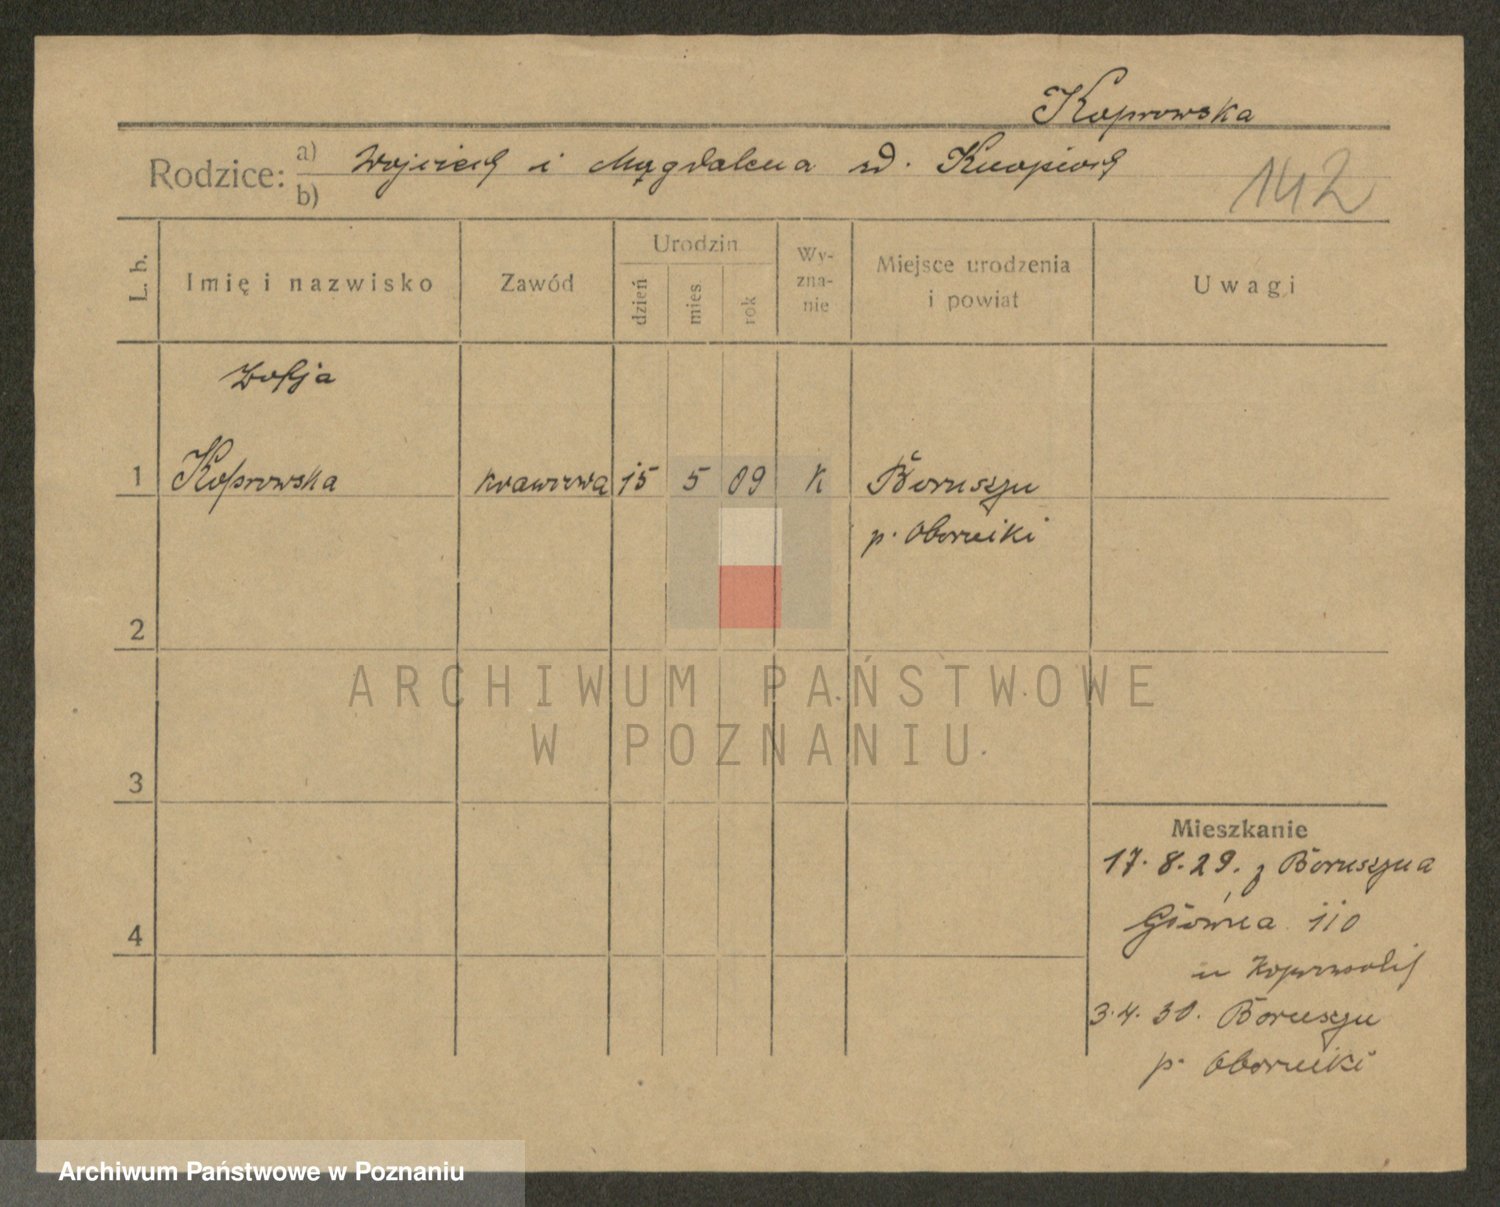 Koprowska
Rodzice: a) Wojciech i Magdalena zd.
b)
142
L. b.
Imię i nazwisko
Zawód
Urodzin
dzień
mies.
rok
Wy-
zna-
nie
Miejsce urodzenia
i powiat
Uwagi
Zofja
1 Koprowska krawcowa 15 5 09 K Boruszyn
p. Oborniki
2
ARCHIWUM PAŃSTWOWE
W POZNANIU
3
Mieszkanie
17.8.29. z Boruszyna
Główna 110
4
u
3.4.30. Boruszyn
p. Oborniki
Archiwum Państwowe w Poznaniu